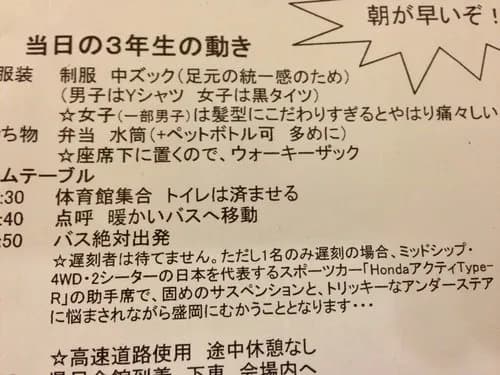 朝が早いぞ!
当日の3年生の動き
服装 制服 中ズック(足元の統一感のため)
(男子はYシャツ 女子は黒タイツ)
☆女子(一部男子)は髪型にこだわりすぎるとやはり痛々しい
ち物 弁当 水筒(+ペットボトル可 多めに)
☆座席下に置くので、ウォーキーザック
ムテーブル
:30 体育館集合 トイレは済ませる
:40 点呼 暖かいバスへ移動
:50 バス絶対出発
☆遅刻者は待てません。ただし1名のみ遅刻の場合、ミッドシップ・
4WD・2シーターの日本を代表するスポーツカー「HondaアクティType-
R」の助手席で、固めのサスペンションと、トリッキーなアンダーステア
に悩まされながら盛岡にむかうこととなります・・・
☆高速道路使用 途中休憩なし
県民会館到着 下車 会場内へ